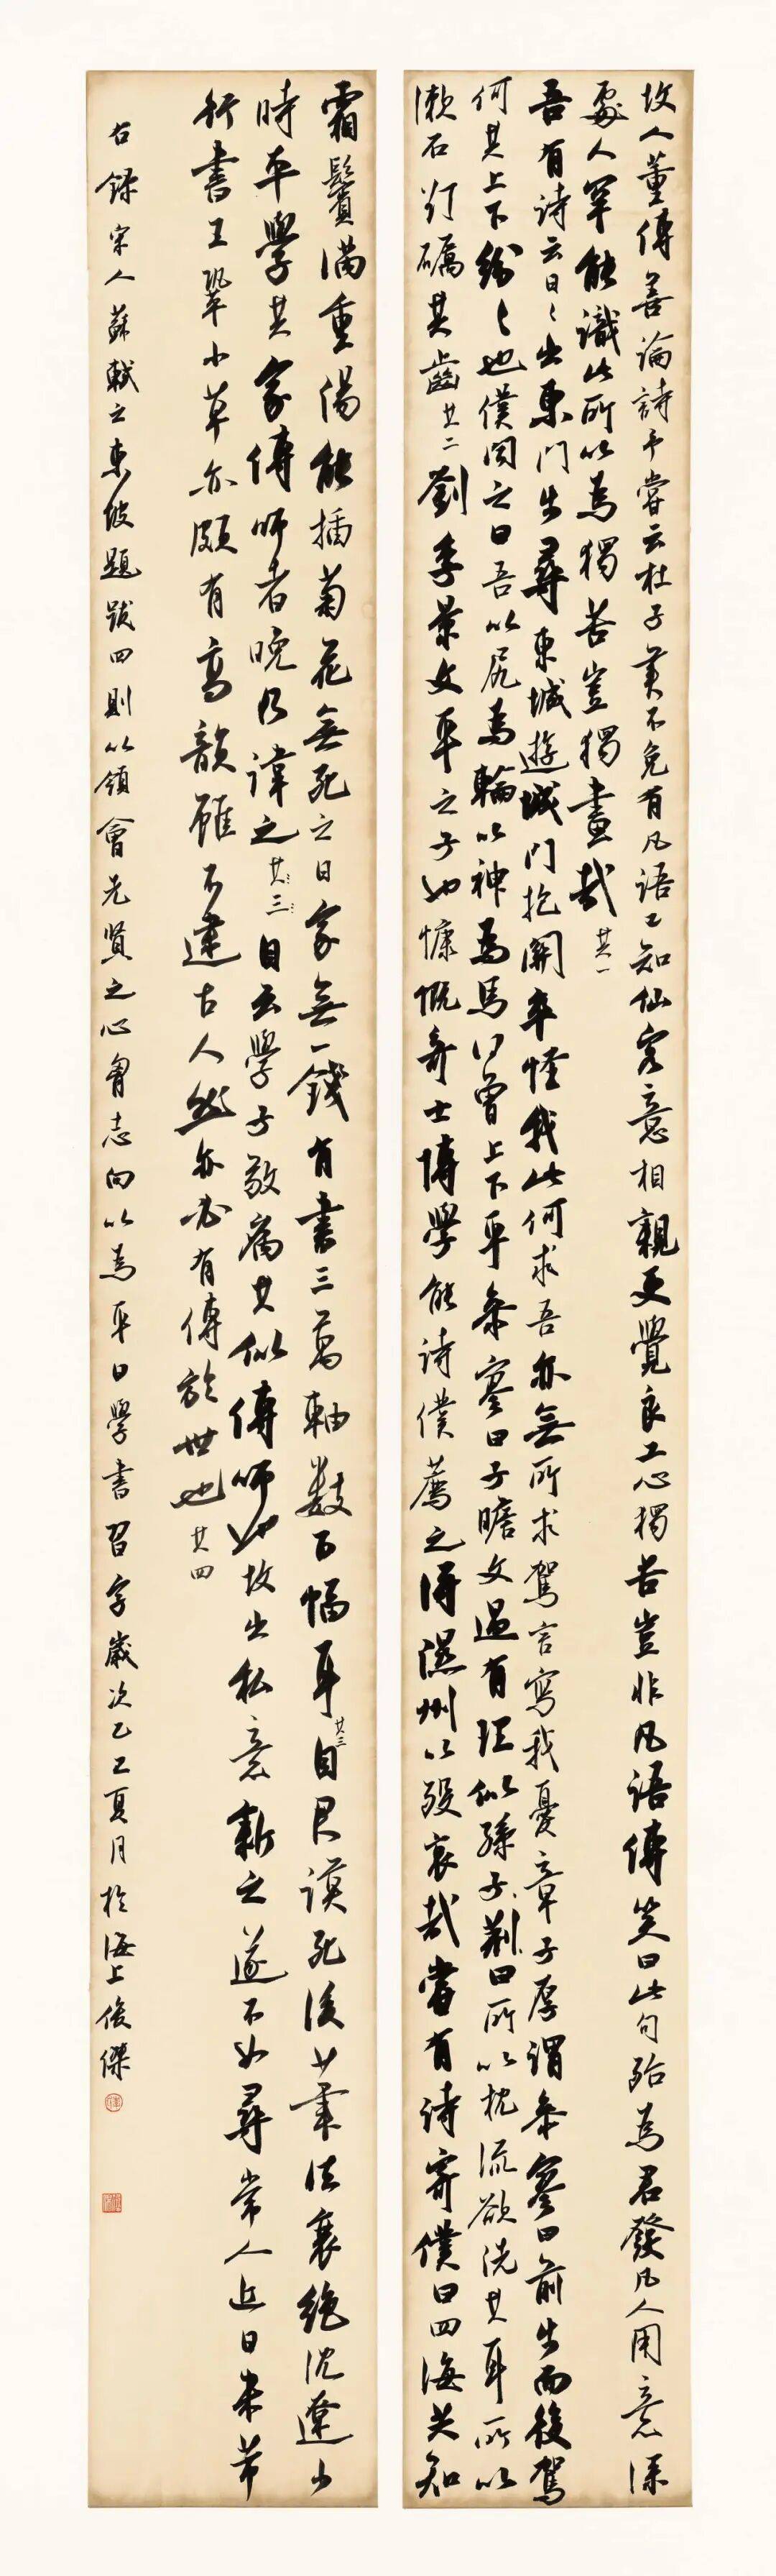 故人董傳善論詩予嘗云杜子美不免有凡語已知仙客意相親更覺良工心獨苦豈非凡語傳笑曰此句殆為君發凡人用意深
處人罕能識此所以為獨苦豈獨畫哉其一
吾有詩云日〻出東門步尋東城遊城門抱關卒怪我此何求吾亦無所求駕言寫我憂章子厚謂參寥曰前步而後駕
何其上下紛〻也僕聞之曰吾以尻為輪以神為馬何曾上下乎參寥曰子瞻文過有理似孫子荊曰所以枕流欲洗其耳所以
漱石欲礪其齒其二劉季孫景文平之子也慷慨奇士博學能詩僕薦之得隰州以歿哀哉嘗有詩寄僕曰四海共知
霜鬢滿重陽能插菊花無死之日家無一錢有書三萬軸數百幅耳其三自君謨死後筆法衰絕沈遼少
時本學其家傳師者晚乃諱之其三自云學子敬病其似傳師也故出私意新之遂不如尋常人近日米芾
行書王鞏小草亦頗有高韻雖不逮古人然亦必有傳於世也其四
右錄宋人蘇軾之東坡題跋四則以領會先賢之心胸志向以為平日學書習字歲次乙巳夏月於海上俊傑